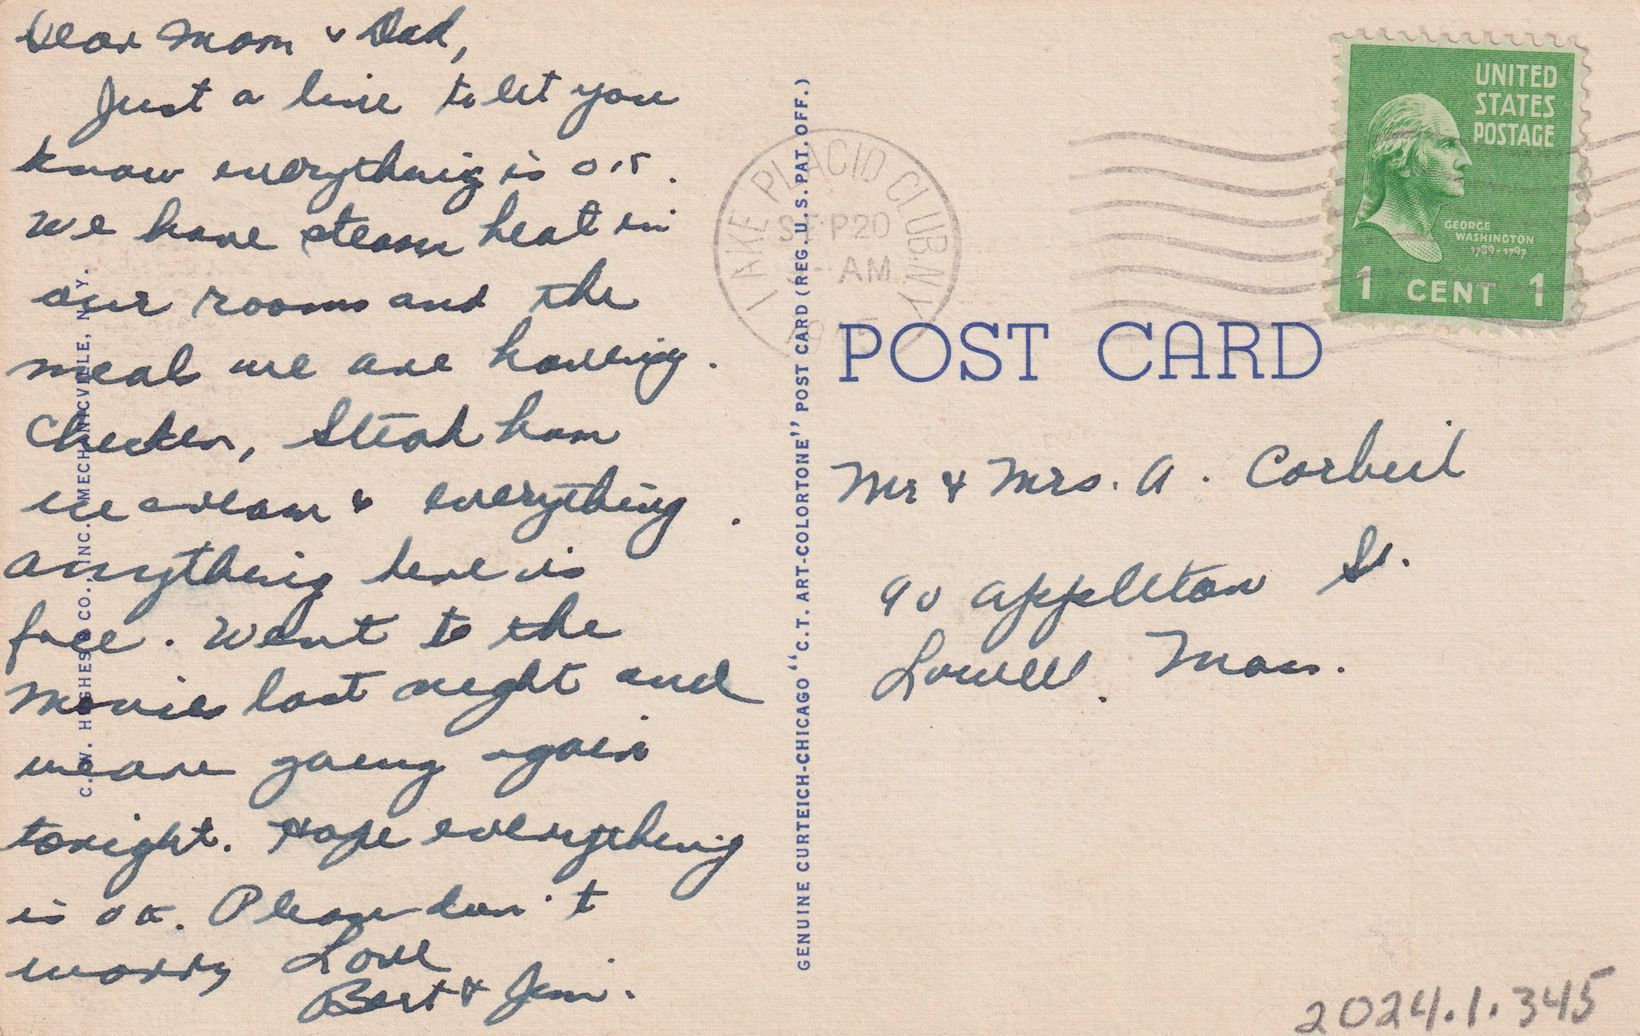 Dear Mom & Dad,
Just a line to let you
know everything is O.K.
We have steam heat in
our rooms and the
meals we are having.
Chicken, Steak ham
ice cream & everything.
Anything here is
free. Went to the
movies last night and
we are going again
tonight. Hope everything
is ok. Please don't
worry Love
Bert & Jim.
C. W. HUGHES CO., INC. MECHANICVILLE, N. Y.
GENUINE CURTEICH-CHICAGO "C. T. ART-COLORTONE" POST CARD (REG. U. S. PAT. OFF.)
LAKE PLACID CLUB. N.Y.
SEP 20
AM
UNITED
STATES
POSTAGE
GEORGE
WASHINGTON
1789-1797
1 CENT 1
POST CARD
Mr & Mrs. A. Corbeil
90 Appleton St.
Lowell, Mass.
2024.1.345